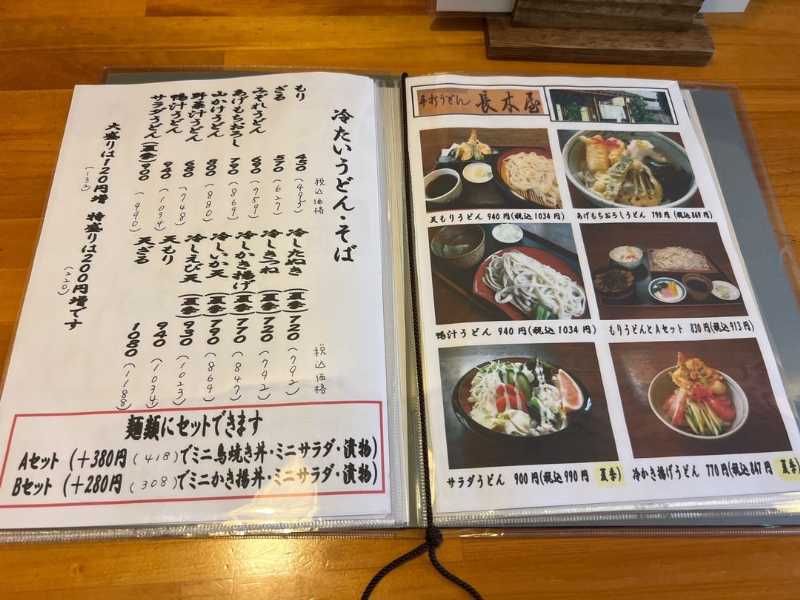 冷たいうどん・そば
税込価格
もり 450 (495)
ざる 570 (627)
みぞれうどん 690 (759)
あげもちおろし 790 (869)
山かけうどん 800 (880)
野菜汁うどん 680 (748)
鴨汁うどん 940 (1034)
サラダうどん(夏季) 900 (990)
税込価格
冷したぬき(夏季) 720 (792)
冷しきつね(夏季) 720 (792)
冷しかき揚げ(夏季) 770 (847)
冷しいか天(夏季) 790 (869)
冷しえび天(夏季) 930 (1023)
天もり 940 (1034)
天ざる 1080 (1188)
大盛りは120円増 特盛りは200円増です
(132) (220)
麺類にセットできます
Aセット (+380円(418)でミニ鳥焼き丼・ミニサラダ・漬物)
Bセット (+280円(308)でミニかき揚丼・ミニサラダ・漬物)
手打うどん 長本屋
天もりうどん 940円(税込1034円)
あげもちおろしうどん 790円(税込869円)
鴨汁うどん 940円(税込1034円)
もりうどんとAセット 830円(税込913円)
サラダうどん 900円(税込990円) 夏季
冷かき揚げうどん 770円(税込847円) 夏季